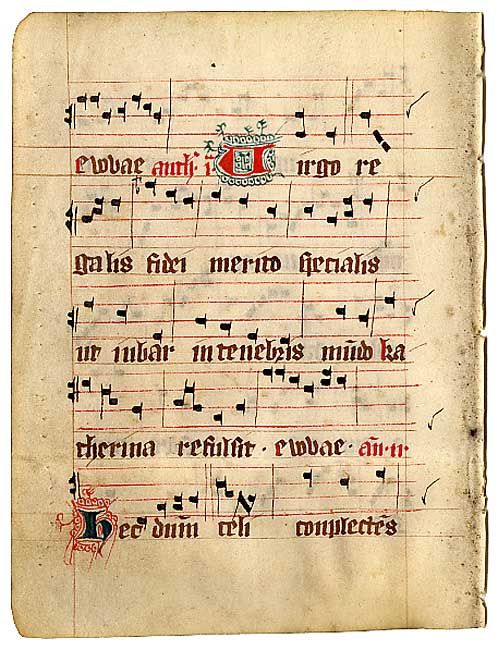 ewvae anth. i. Uirgo re
galis fidei merito specialis
ut iubar in tenebris mūdo ka
therina refulsit · ewvae · an̄. ii
hec dnm̄ celi conplectēs